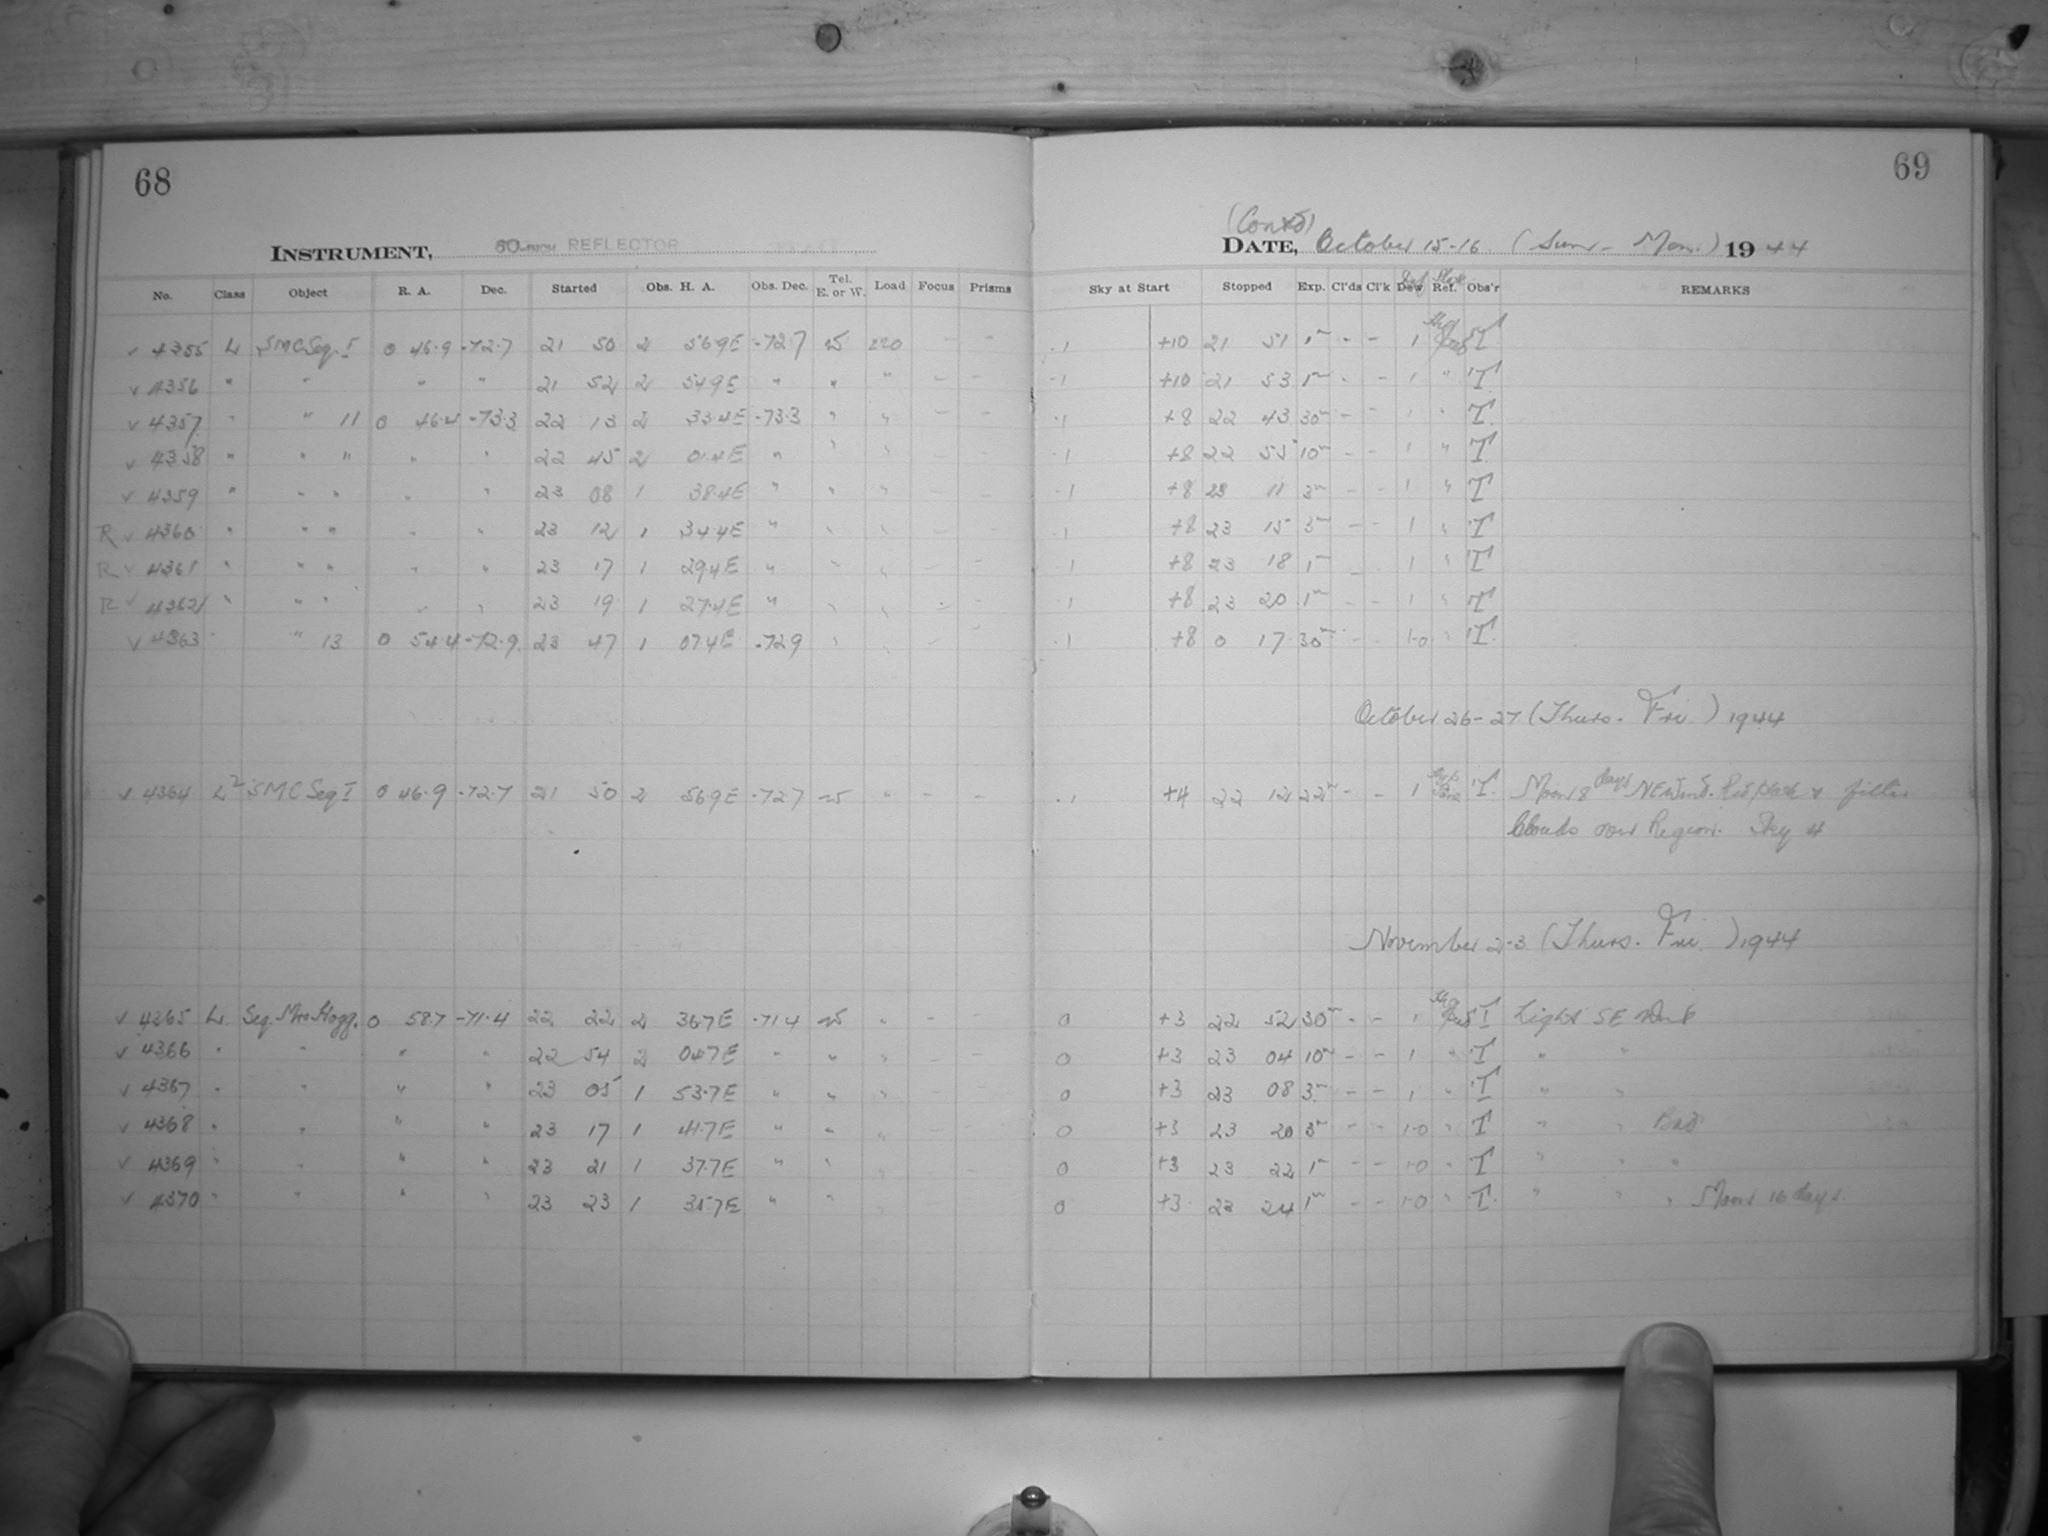 68
INSTRUMENT, 60-INCH REFLECTOR
No. Class Object R. A. Dec. Started Obs. H. A. Obs. Dec. Tel. E. or W. Load Focus Prisms
4355 L SMC Seq. I 0 46.9 -72.7 21 50 2 56.9E -72.7 W 220 - -
4356 " " " " 21 52 2 54.9E " " " - -
4357 " " 11 0 46.4 -73.3 22 13 2 33.4E -73.3 " " - -
4358 " " " " " 22 45 2 01.4E " " " - -
4359 " " " " " 23 08 1 38.4E " " " - -
R 4360 " " " " " 23 12 1 34.4E " " " - -
R 4361 " " " " " 23 17 1 29.4E " " " - -
R 4362 " " " " " 23 19 1 27.4E " " " - -
4363 " 13 0 54.4 -72.9 23 47 1 07.4E -72.9 " " - -
4364 L2 SMC Seq I 0 46.9 -72.7 21 50 2 56.9E -72.7 W " - -
4365 L Seq. Mrs Hogg. 0 58.7 -71.4 22 22 2 36.7E -71.4 W " - -
4366 " " " " 22 54 2 04.7E " " " - -
4367 " " " " 23 05 1 53.7E " " " - -
4368 " " " " 23 17 1 41.7E " " " - -
4369 " " " " 23 21 1 37.7E " " " - -
4370 " " " " 23 23 1 35.7E " " " - -
69
(Contd)
DATE, October 15-16 (Sun - Mon.) 1944
Sky at Start Stopped Exp. Cl'ds Cl'k Dew Ref. Obs'r REMARKS
-1 +10 21 51 1m - - 1 T
-1 +10 21 53 1m - - 1 " T
-1 +8 22 43 30m - - 1 " T
-1 +8 22 55 10m - - 1 " T
-1 +8 23 11 3m - - 1 " T
-1 +8 23 15 3m - - 1 " T
-1 +8 23 18 1m - - 1 " T
-1 +8 23 20 1m - - 1 " T
-1 +8 0 17 30m - - 1-0 " T
October 26-27 (Thurs. Fri.) 1944
-1 +4 22 12 22m - - 1 T. Moon 8 days NE Wind. Red plate & filter
Clouds over Region. Sky 4
November 2-3 (Thurs. Fri.) 1944
0 +3 22 52 30m - - 1 T Light SE Wind
0 +3 23 04 10m - - 1 " T " "
0 +3 23 08 3m - - 1 " T " "
0 +3 23 20 3m - - 1-0 " T " " Bad
0 +3 23 22 1m - - 1-0 " T " " "
0 +3 23 24 1m - - 1-0 " T " " " Moon 16 days.